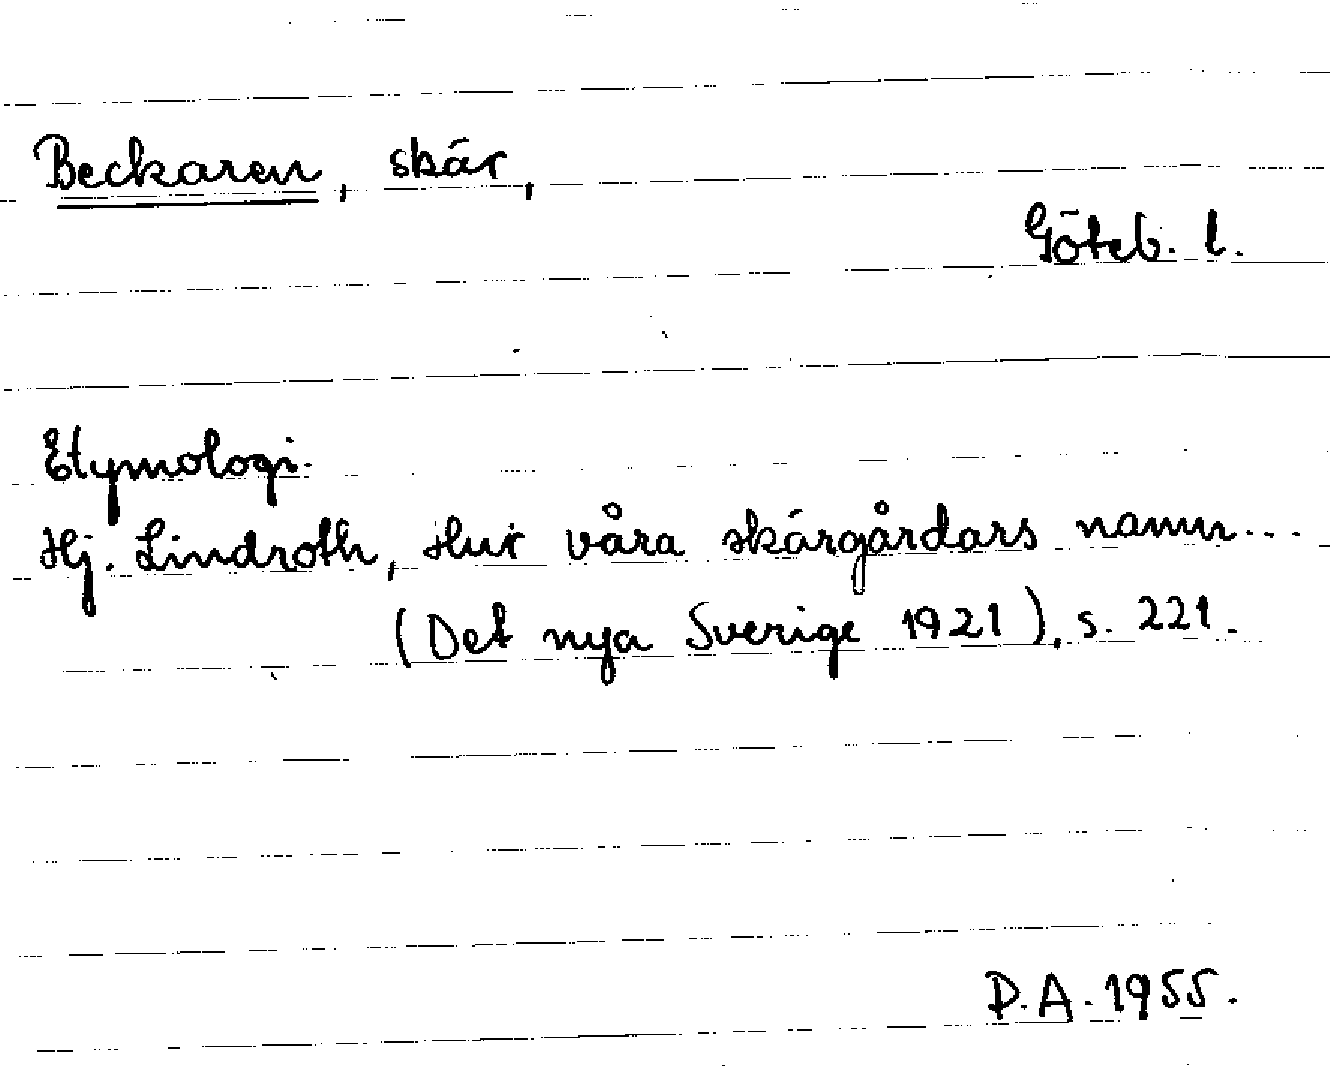 Beckaren, skär,
Göteb. l.
Etymologi.
Hj. Lindroth, Hur våra skärgårdars namn...
(Det nya Sverige 1921), s. 221.
D.A. 1955.